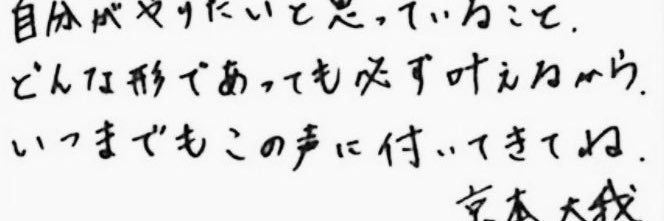 自分がやりたいと思っていること.
どんな形であっても必ず叶えるから.
いつまでもこの声に付いてきてね.
京本大我